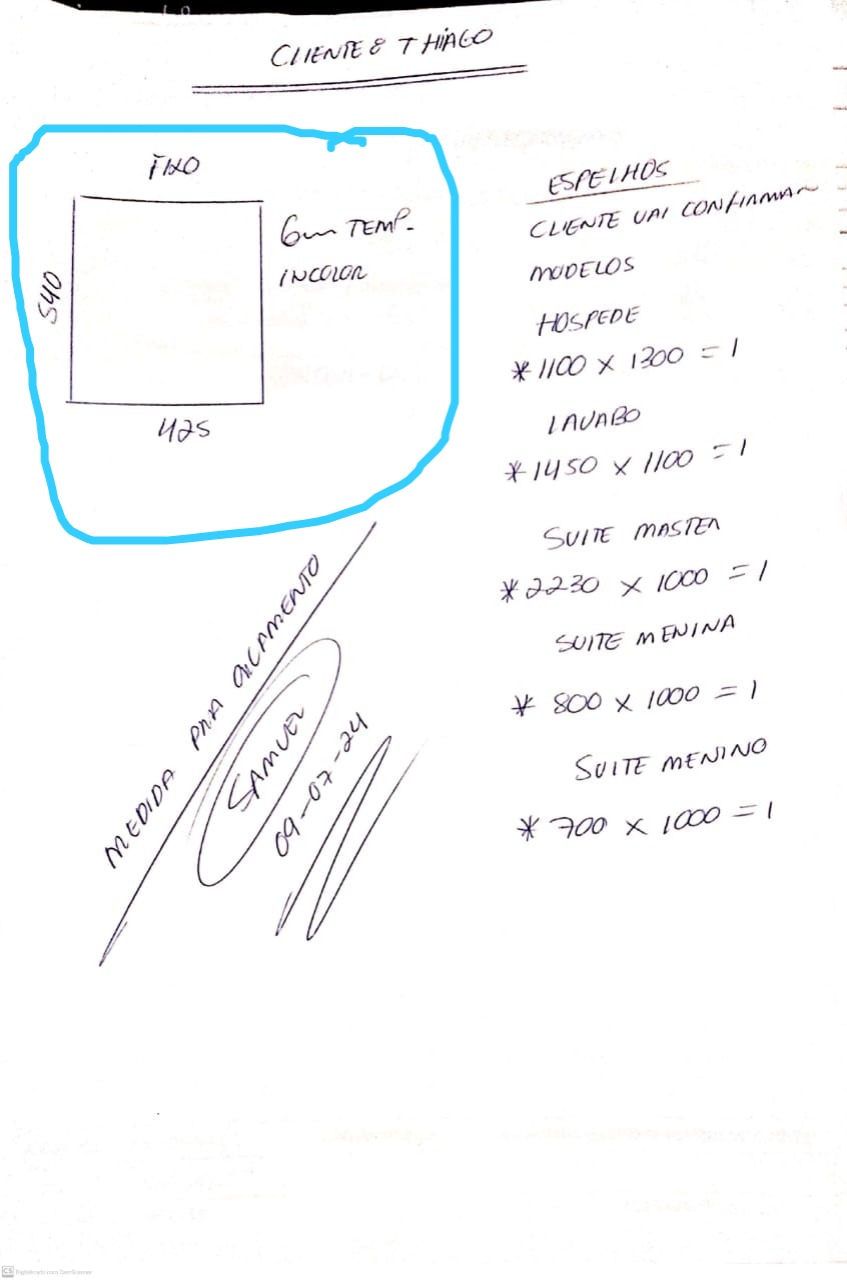 CLIENTE: THIAGO
FIXO
6mm TEMP.
INCOLOR
540
425
ESPELHOS
CLIENTE VAI CONFIRMAR
MODELOS
HOSPEDE
*1100 x 1300 = 1
LAVABO
*1450 x 1100 = 1
SUITE MASTER
*2230 x 1000 = 1
SUITE MENINA
* 800 x 1000 = 1
SUITE MENINO
* 700 x 1000 = 1
MEDIDA PRA ORÇAMENTO
SAMUEL
09-07-24
CS Digitalizado com CamScanner